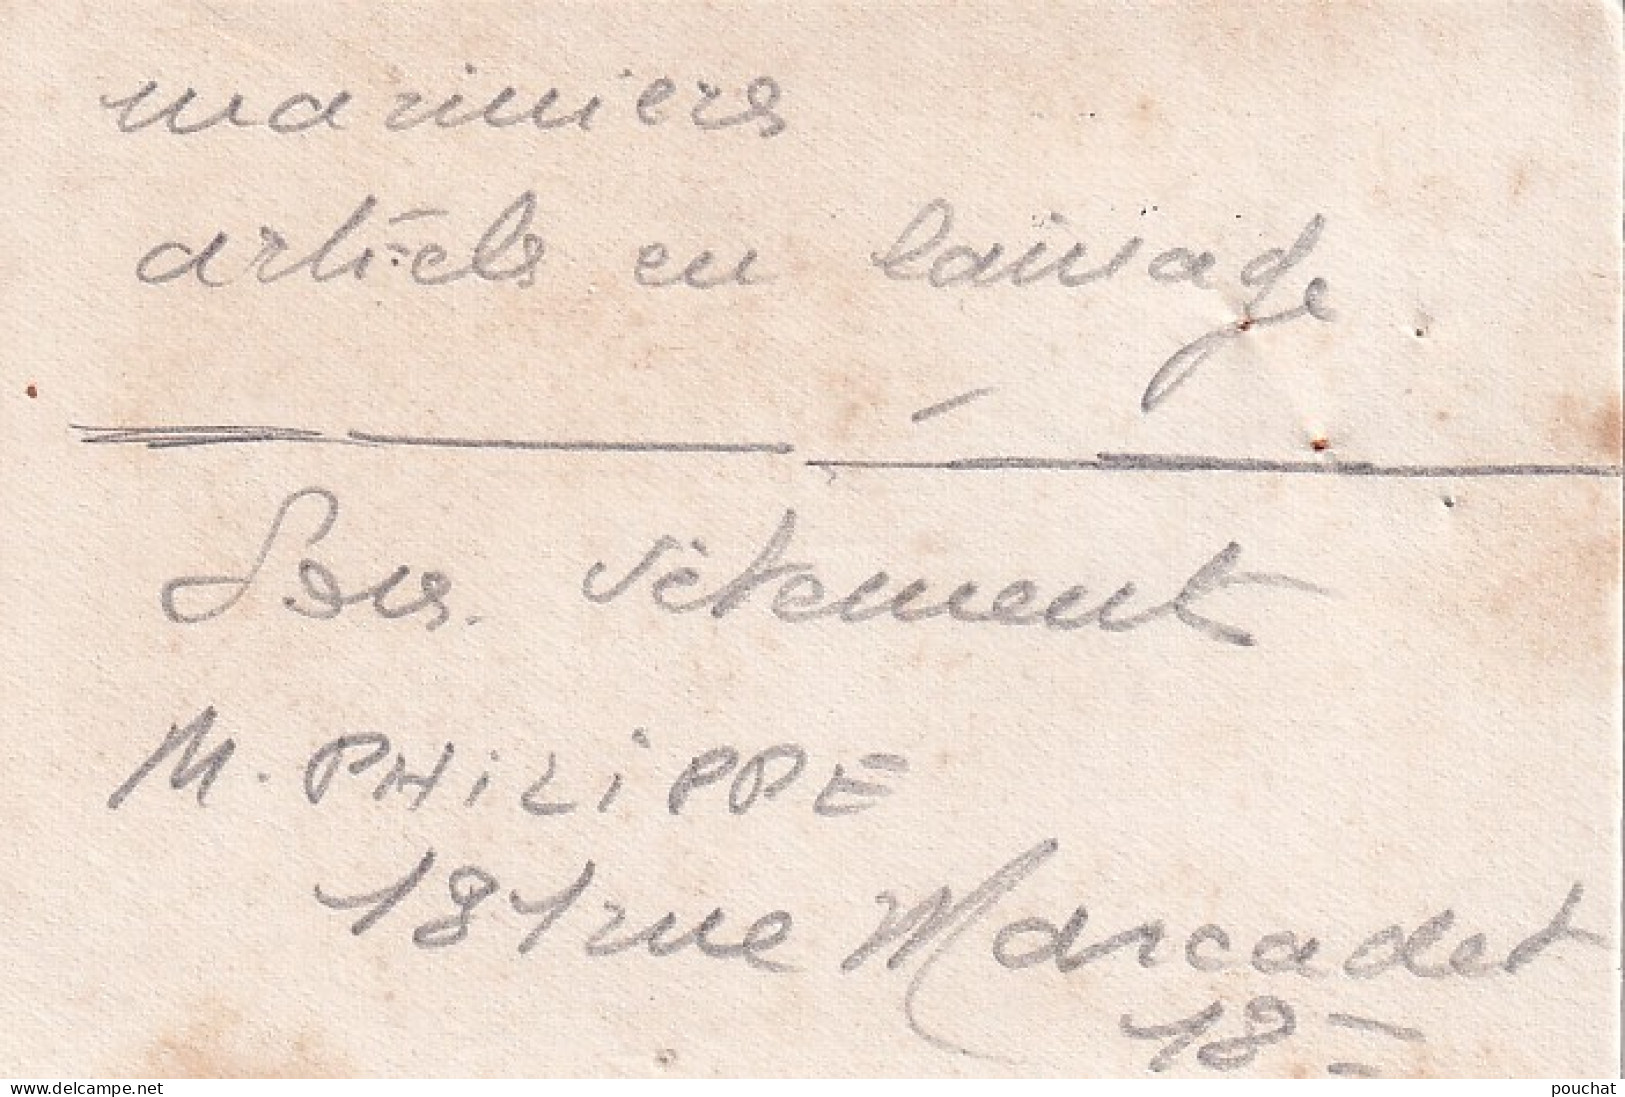 mariniers
articls en lainage
Sous vêtement
M. PHILIPPE
181 rue Marcadet
18 -
www.delcampe.net
pouchat